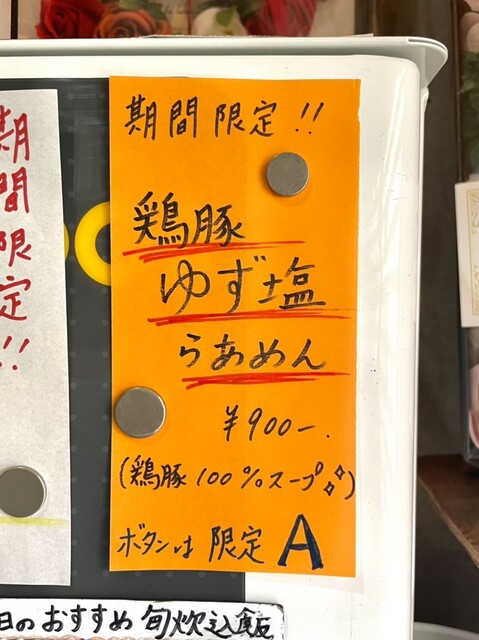 期間限定!!
期間限定!!
鶏豚
ゆず塩
らあめん
¥900-.
(鶏豚100%スープ)
ボタンは 限定 A
日のおすすめ 旬炊込飯